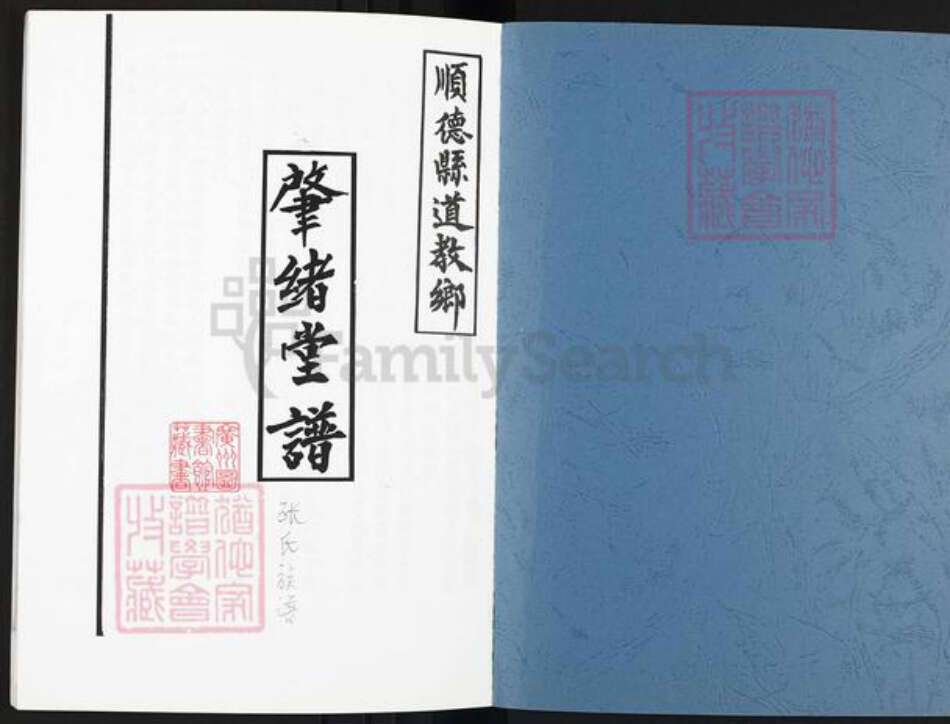 順德縣道教鄉
肇緒堂譜
张氏族谱
廣州圖書館藏書
猶他家譜學會收藏
猶他家譜學會收藏
FamilySearch